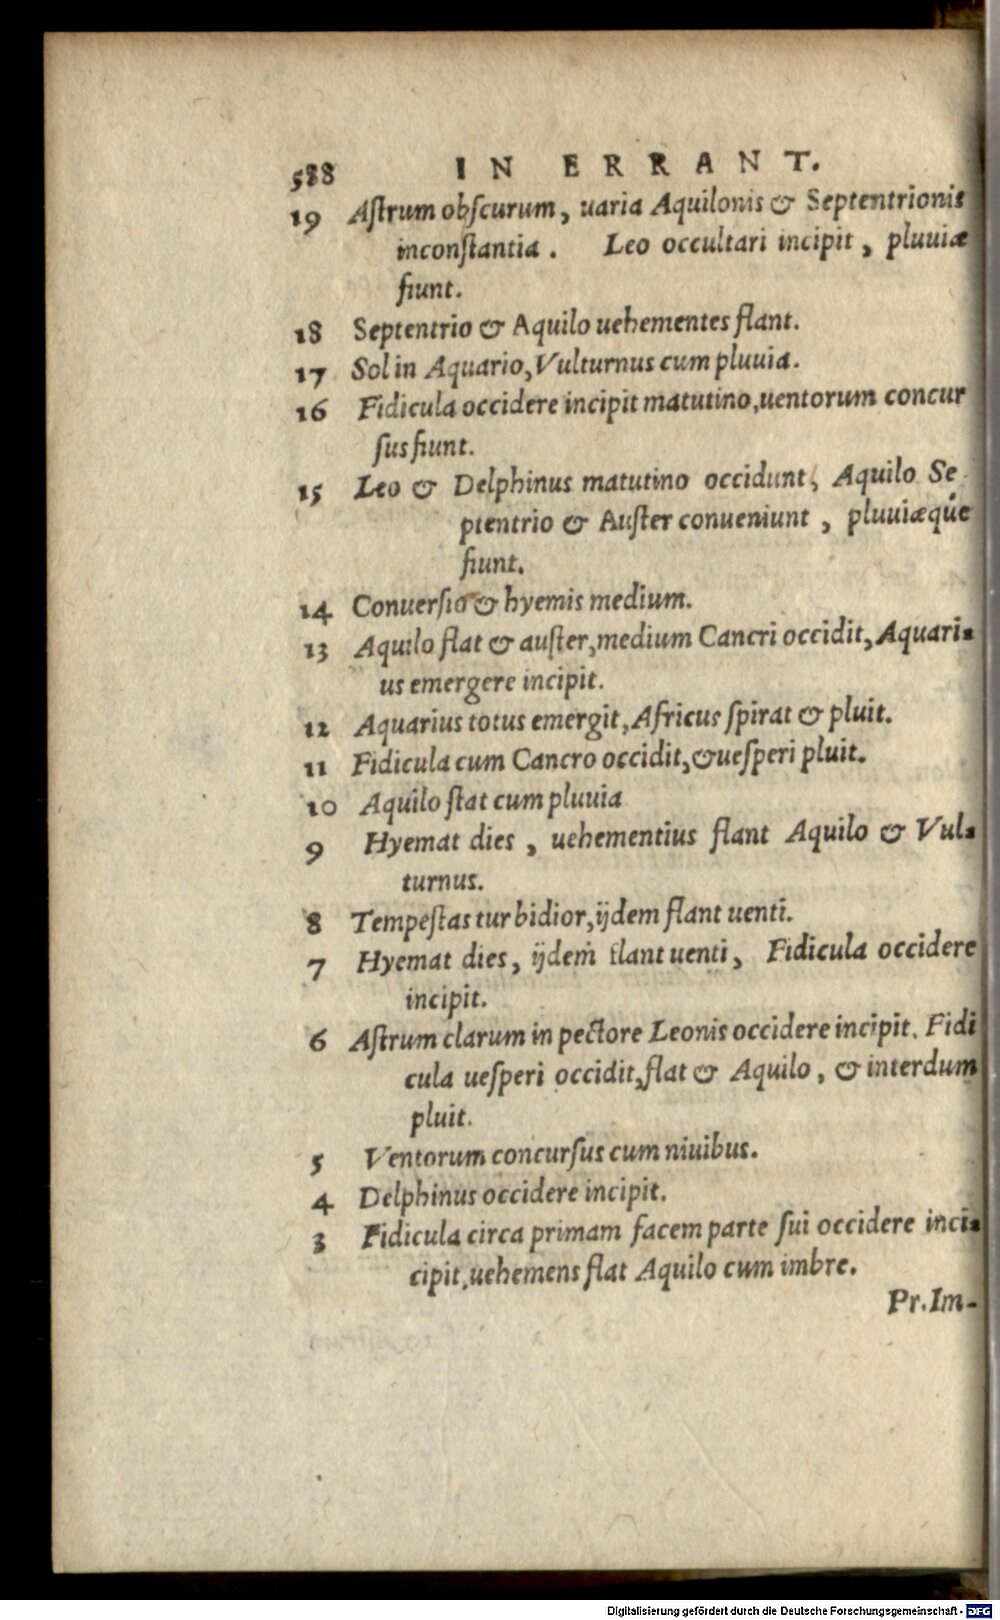 588 IN ERRANT.
19 Aſtrum obſcurum, uaria Aquilonis & Septentrionis
inconſtantia. Leo occultari incipit, pluuiæ
fiunt.
18 Septentrio & Aquilo uehementes flant.
17 Sol in Aquario, Vulturnus cum pluuia.
16 Fidicula occidere incipit matutino, uentorum concur
ſus fiunt.
15 Leo & Delphinus matutino occidunt, Aquilo Se
ptentrio & Auſter conueniunt, pluuiæqúe
fiunt.
14 Conuerſio & hyemis medium.
13 Aquilo flat & auſter, medium Cancri occidit, Aquari-
us emergere incipit.
12 Aquarius totus emergit, Africus ſpirat & pluit.
11 Fidicula cum Cancro occidit, & ueſperi pluit.
10 Aquilo ſtat cum pluuia
9 Hyemat dies, uehementius flant Aquilo & Vul-
turnus.
8 Tempeſtas turbidior, ijdem flant uenti.
7 Hyemat dies, ijdem flant uenti, Fidicula occidere
incipit.
6 Aſtrum clarum in pectore Leonis occidere incipit. Fidi
cula ueſperi occidit, flat & Aquilo, & interdum
pluit.
5 Ventorum concurſus cum niuibus.
4 Delphinus occidere incipit.
3 Fidicula circa primam facem parte ſui occidere inci-
cipit, uehemens flat Aquilo cum imbre.
Pr. Im-
Digitalisierung gefördert durch die Deutsche Forschungsgemeinschaft - DFG